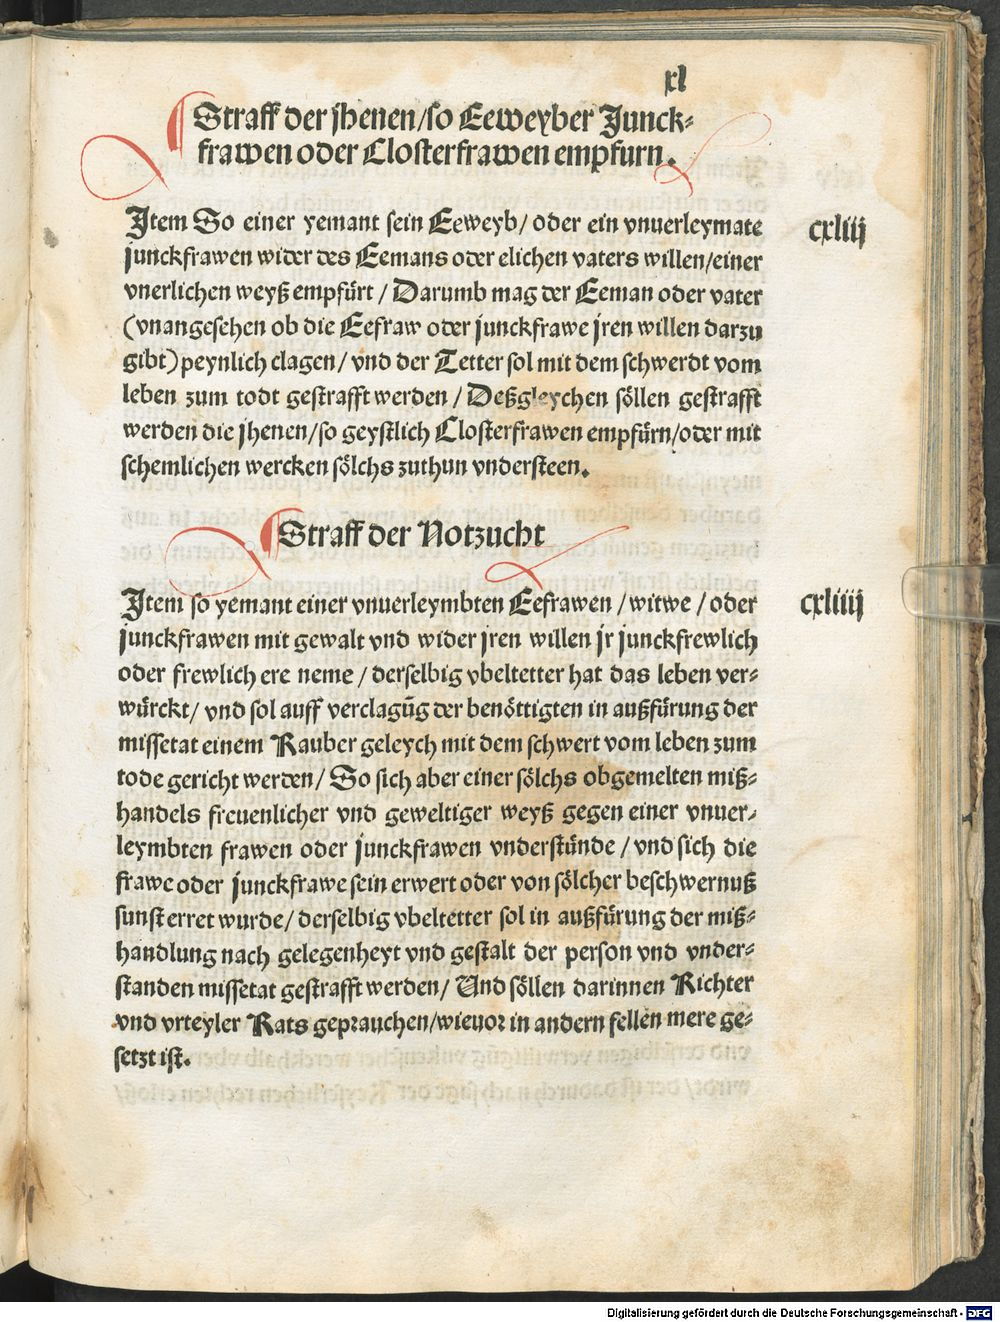 xl
Straff der jhenen/so Eeweyber Junck⸗
frawen oder Closterfrawen empfurn.
Item So einer yemant sein Eeweyb/ oder ein vnuerleymate
junckfrawen wider des Eemans oder elichen vaters willen/einer
vnerlichen weyß empfürt / Darumb mag der Eeman oder vater
(vnangesehen ob die Eefraw oder junckfrawe jren willen darzu
gibt) peynlich clagen/ vnd der Tetter sol mit dem schwerdt vom
leben zum todt gestrafft werden / Deßgleychen söllen gestrafft
werden die jhenen/so geystlich Closterfrawen empfürn/oder mit
schemlichen wercken sölchs zuthun vndersteen.
cxliij
Straff der Notzucht
Item so yemant einer vnuerleymbten Eefrawen /witwe / oder
junckfrawen mit gewalt vnd wider jren willen jr junckfrewlich
oder frewlich ere neme / derselbig vbeltetter hat das leben ver⸗
würckt/ vnd sol auff verclagūg der benöttigten in außfürung der
missetat einem Rauber geleych mit dem schwert vom leben zum
tode gericht werden/ So sich aber einer sölchs obgemelten miß⸗
handels freuenlicher vnd geweltiger weyß gegen einer vnuer⸗
leymbten frawen oder junckfrawen vnderstünde / vnd sich die
frawe oder junckfrawe sein erwert oder von sölcher beschwernuß
sunst erret wurde/ derselbig vbeltetter sol in außfürung der miß⸗
handlung nach gelegenheyt vnd gestalt der person vnd vnder⸗
standen missetat gestrafft werden/ Und söllen darinnen Richter
vnd vrteyler Rats geprauchen/wieuor in andern fellen mere ge⸗
setzt ist.
cxliiij
Digitalisierung gefördert durch die Deutsche Forschungsgemeinschaft - DFG